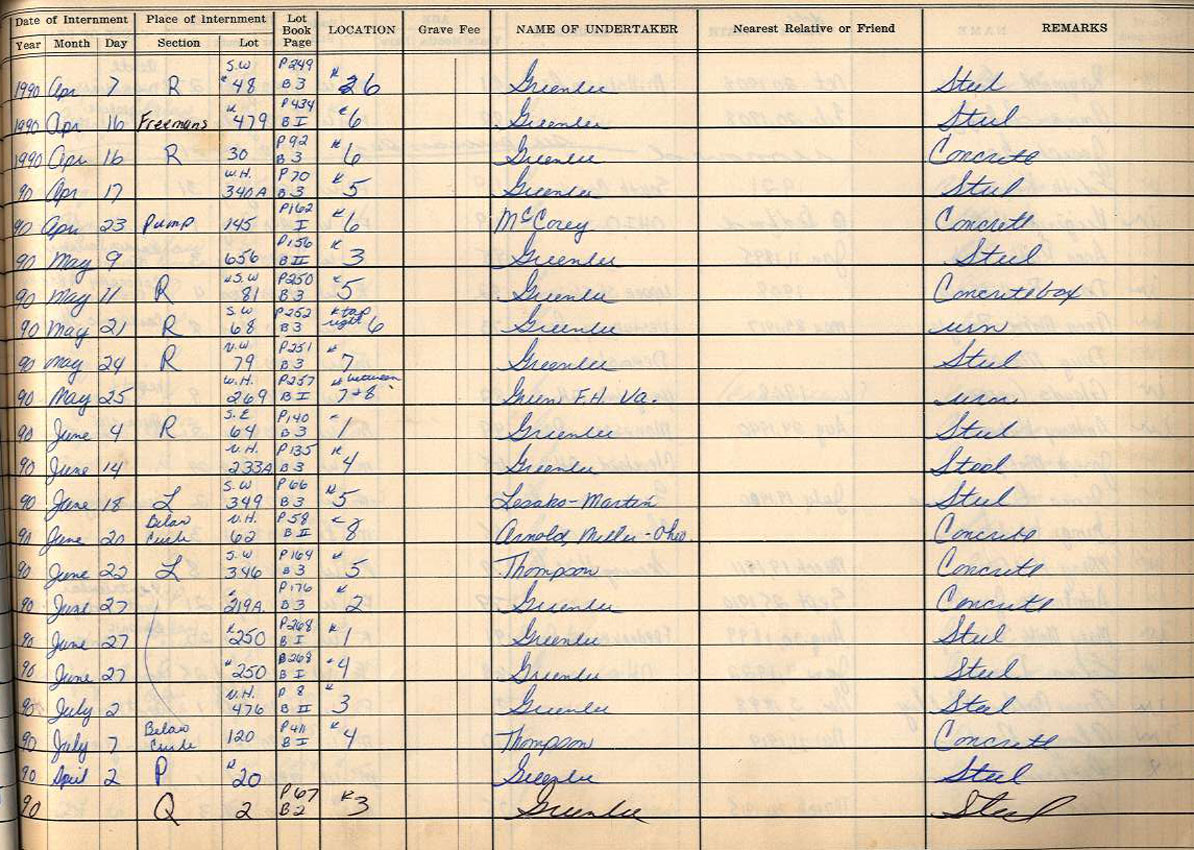 Date of Internment Place of Internment Lot Book Page LOCATION Grave Fee NAME OF UNDERTAKER Nearest Relative or Friend REMARKS
Year Month Day Section Lot
1990 Apr 7 R S.W #48 P249 B3 #26 Greenlee Steel
1990 Apr 16 Freemans #479 P434 B I #6 Greenlee Steel
1990 Apr 16 R 30 P92 B3 #6 Greenlee Concrete
90 Apr 17 W.H. 340A P70 B3 #5 Greenlee Steel
90 Apr 23 Pump 145 P162 I #6 McCorey Concrete
90 May 9 656 P156 B II #3 Greenlee Steel
90 May 11 R S.W 81 P250 B3 #5 Greenlee Concrete box
90 May 21 R S.W 68 P252 B3 #top right 6 Greenlee urn
90 May 24 R N.W 79 P251 B3 #7 Greenlee Steel
90 May 25 W.H. 269 P257 B I # between 7+8 Green F.H. Va. urn
90 June 4 R S.E 64 P140 B3 1 Greenlee Steel
90 June 14 N.H. 233A P135 B3 #4 Greenlee Steel
90 June 18 L S.W 349 P66 B3 #5 Lesako-Martin Steel
90 June 20 Below Circle N.H. 62 P58 B II 8 Arnold, Miller-Ohio Concrete
90 June 22 L S.W 346 P164 B3 #5 Thompson Concrete
90 June 27 219A P176 B3 #2 Greenlee Concrete
90 June 27 #250 P268 B I #1 Greenlee Steel
90 June 27 #250 B268 B I #4 Greenlee Steel
90 July 2 N.H. 476 P8 B II #3 Greenlee Steel
90 July 7 Below Circle 120 P411 B I #4 Thompson Concrete
90 April 2 P #20 Greenlee Steel
90 Q 2 P67 B2 #3 Greenlee Steel